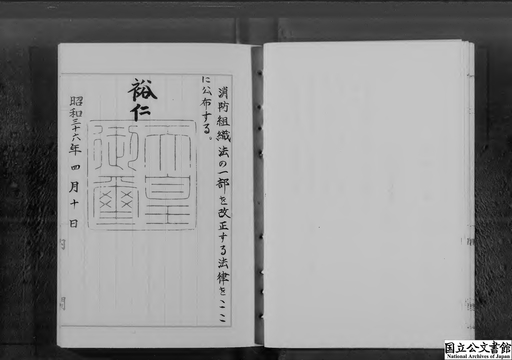 消防組織法の一部を改正する法律をここ
に公布する。
裕仁
天皇
御璽
昭和三十六年四月十日
国立公文書館
National Archives of Japan